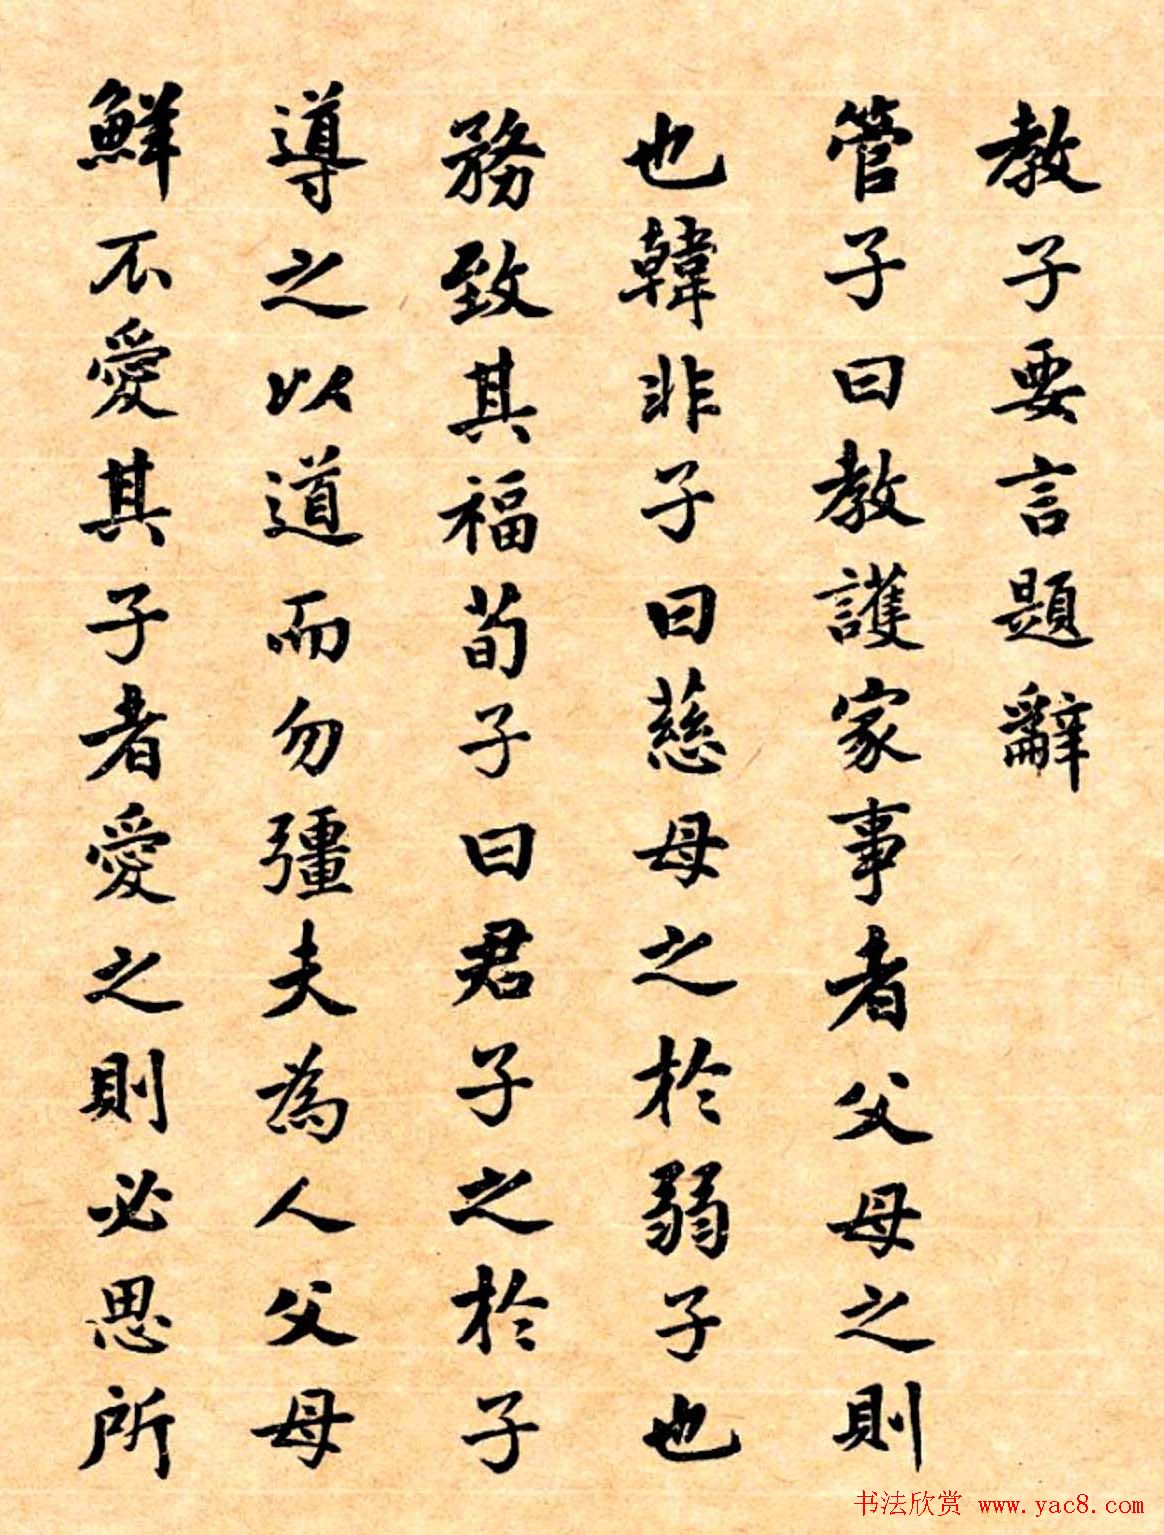 教子要言題辭
管子曰教護家事者父母之則
也韓非子曰慈母之於弱子也
務致其福荀子曰君子之於子
導之以道而勿彊夫為人父母
鮮不愛其子者愛之則必思所
书法欣赏 www.yac8.com